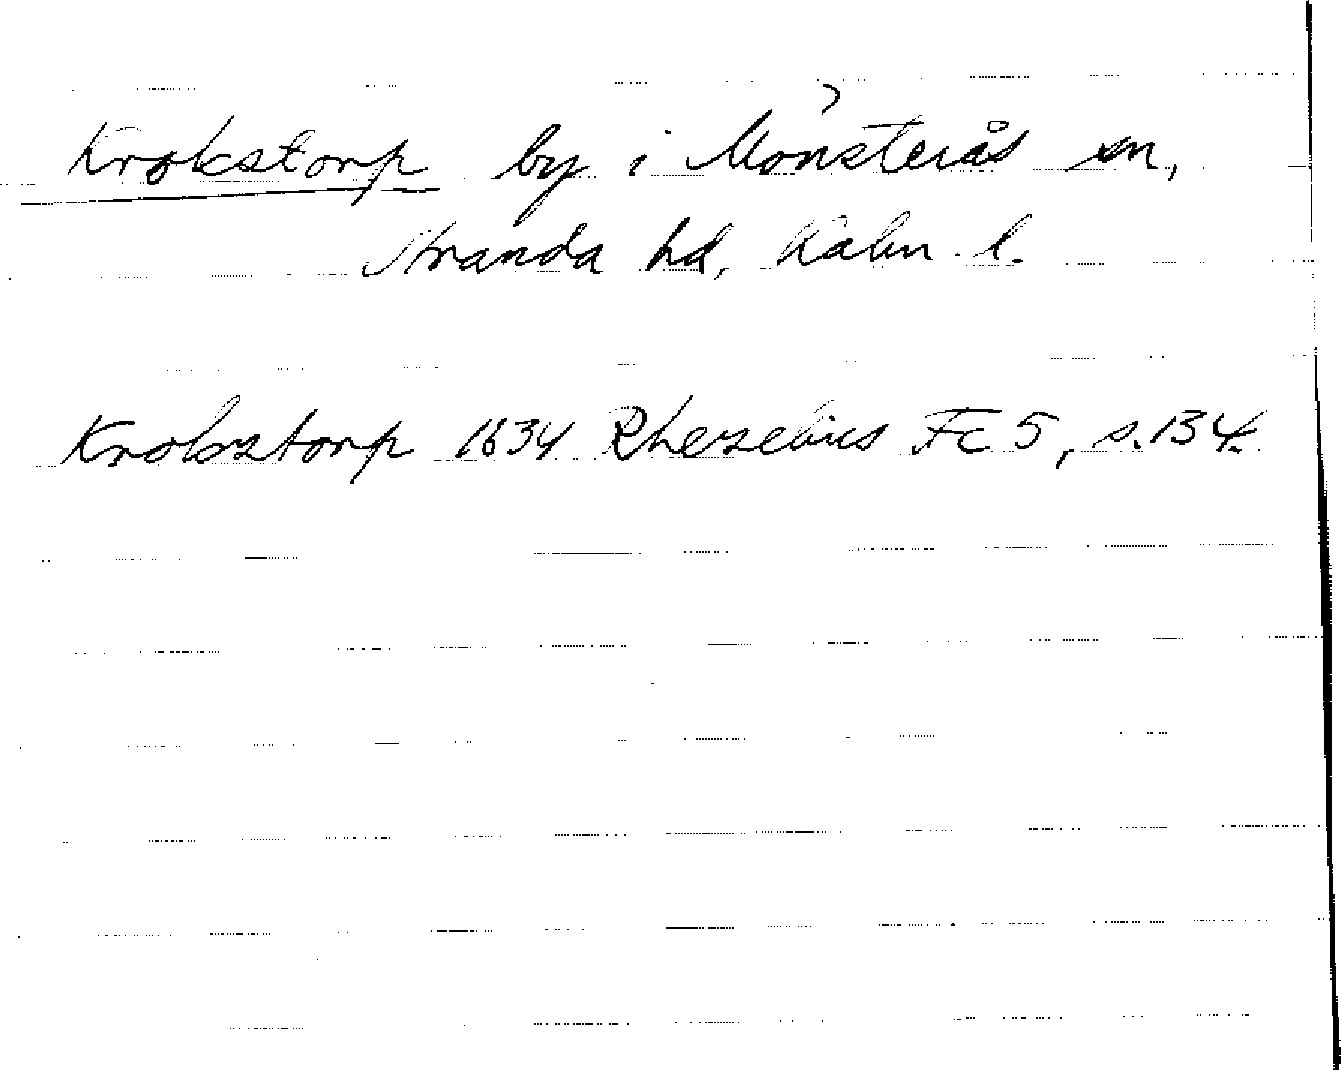 Krokstorp by i Mönsterås sn,
Stranda hd, Kalm. l.
Krokstorp 1634 Rhezelius Fc 5, s. 134.